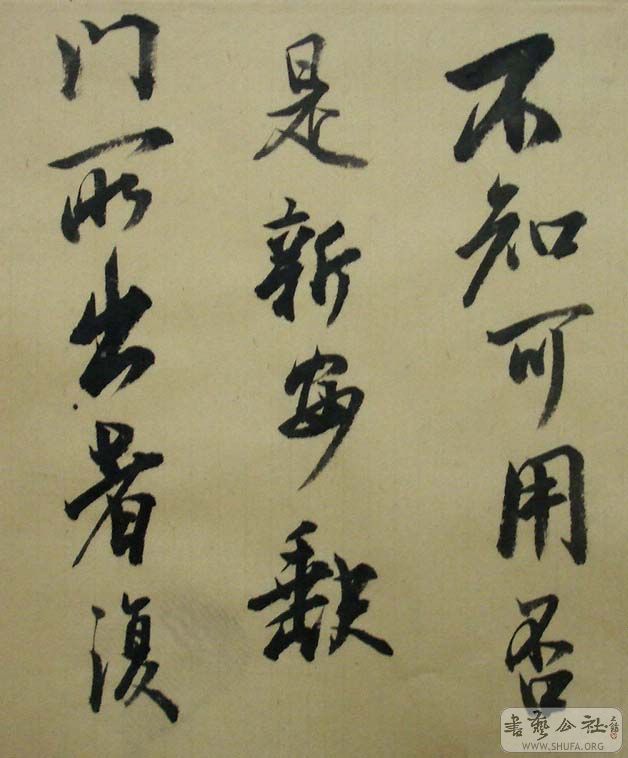 不知可用否
是新安缺
门所出者復
書藝公社
WWW.SHUFA.ORG